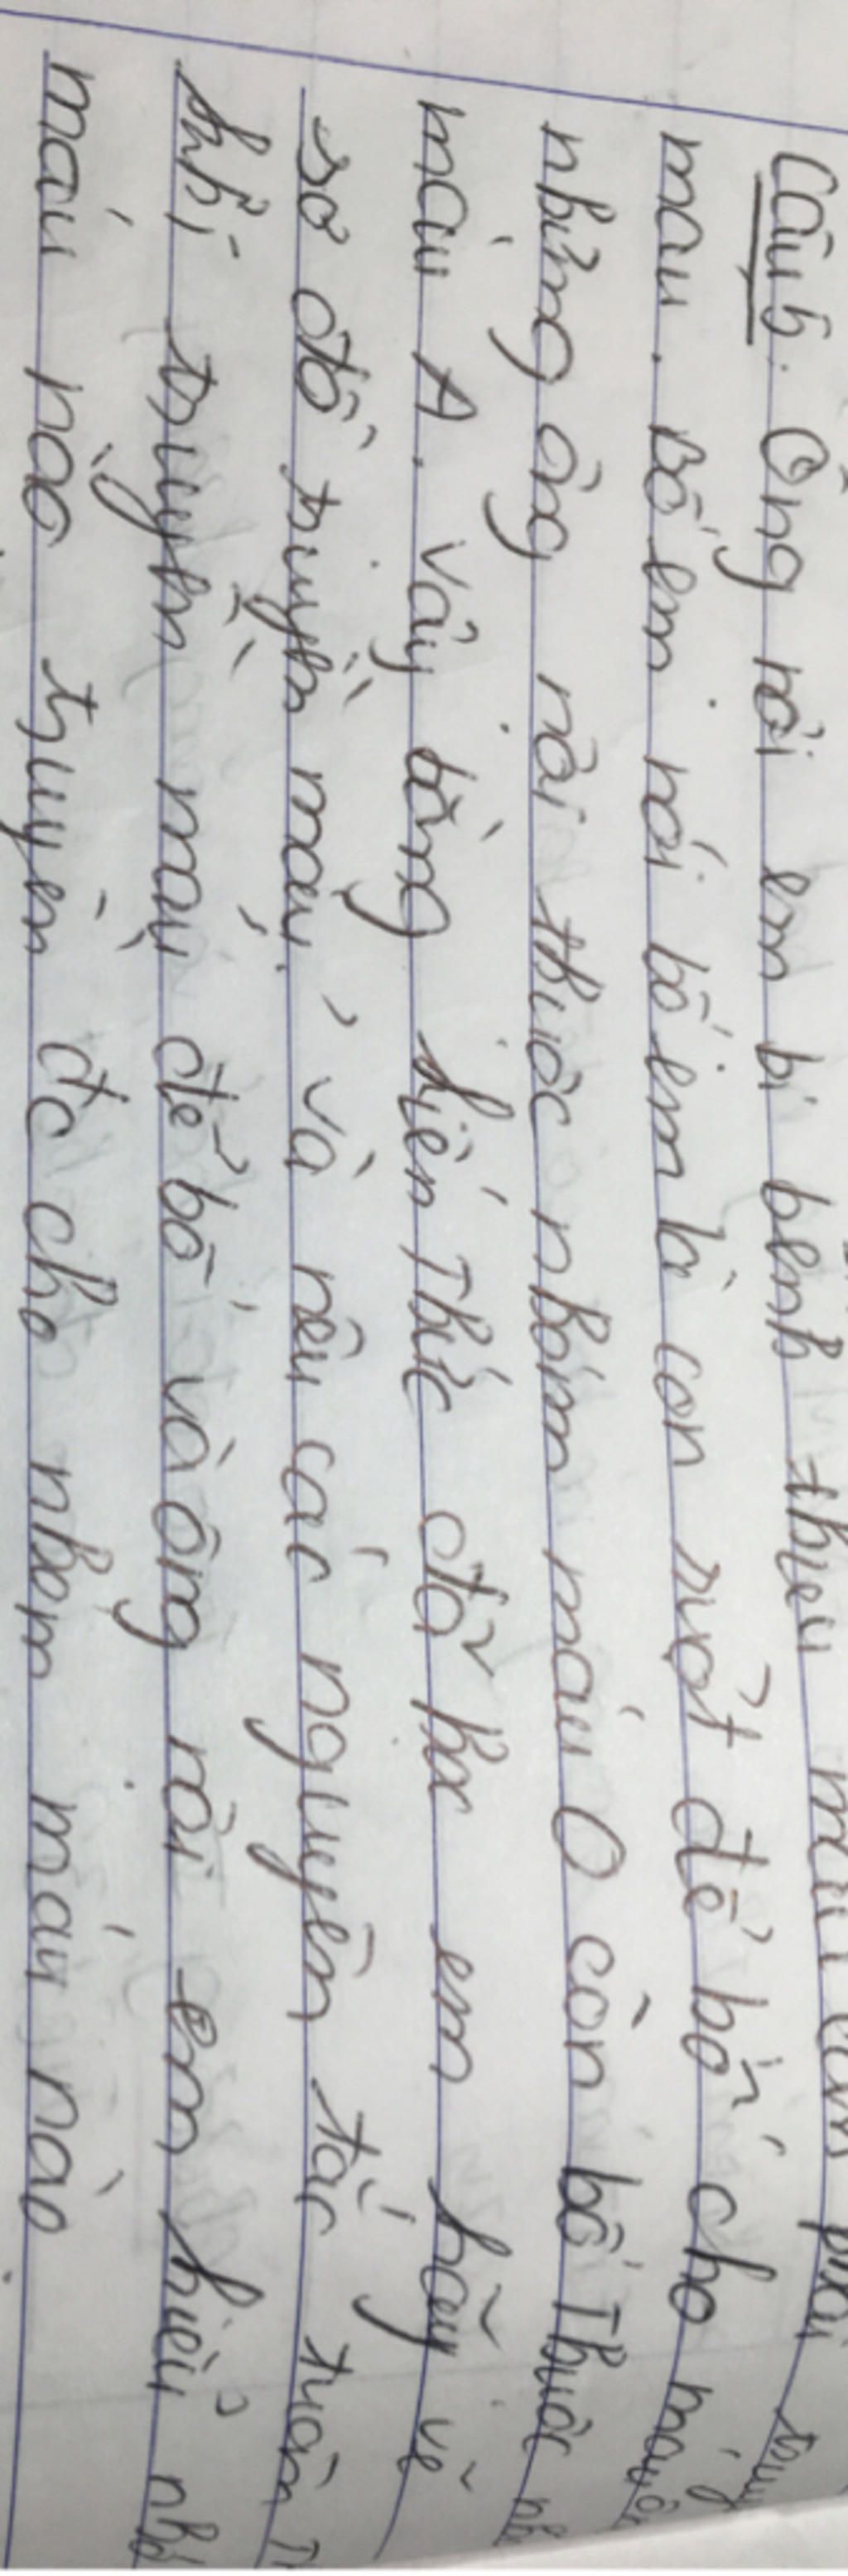 Câu 5. Ông nội em bị bệnh thiếu máu cần phải truyền
máu. Bố em nói bố em là con ruột để bố cho máu ông
nhưng ông nội thuộc nhóm máu O còn bố thuộc
máu A. Vậy bằng kiến thức đã học em hãy vẽ
sơ đồ truyền máu, và nêu các nguyên tắc tuân
khi truyền máu để bố và ông nội em hiểu
máu nào truyền đc cho nhóm máu nào